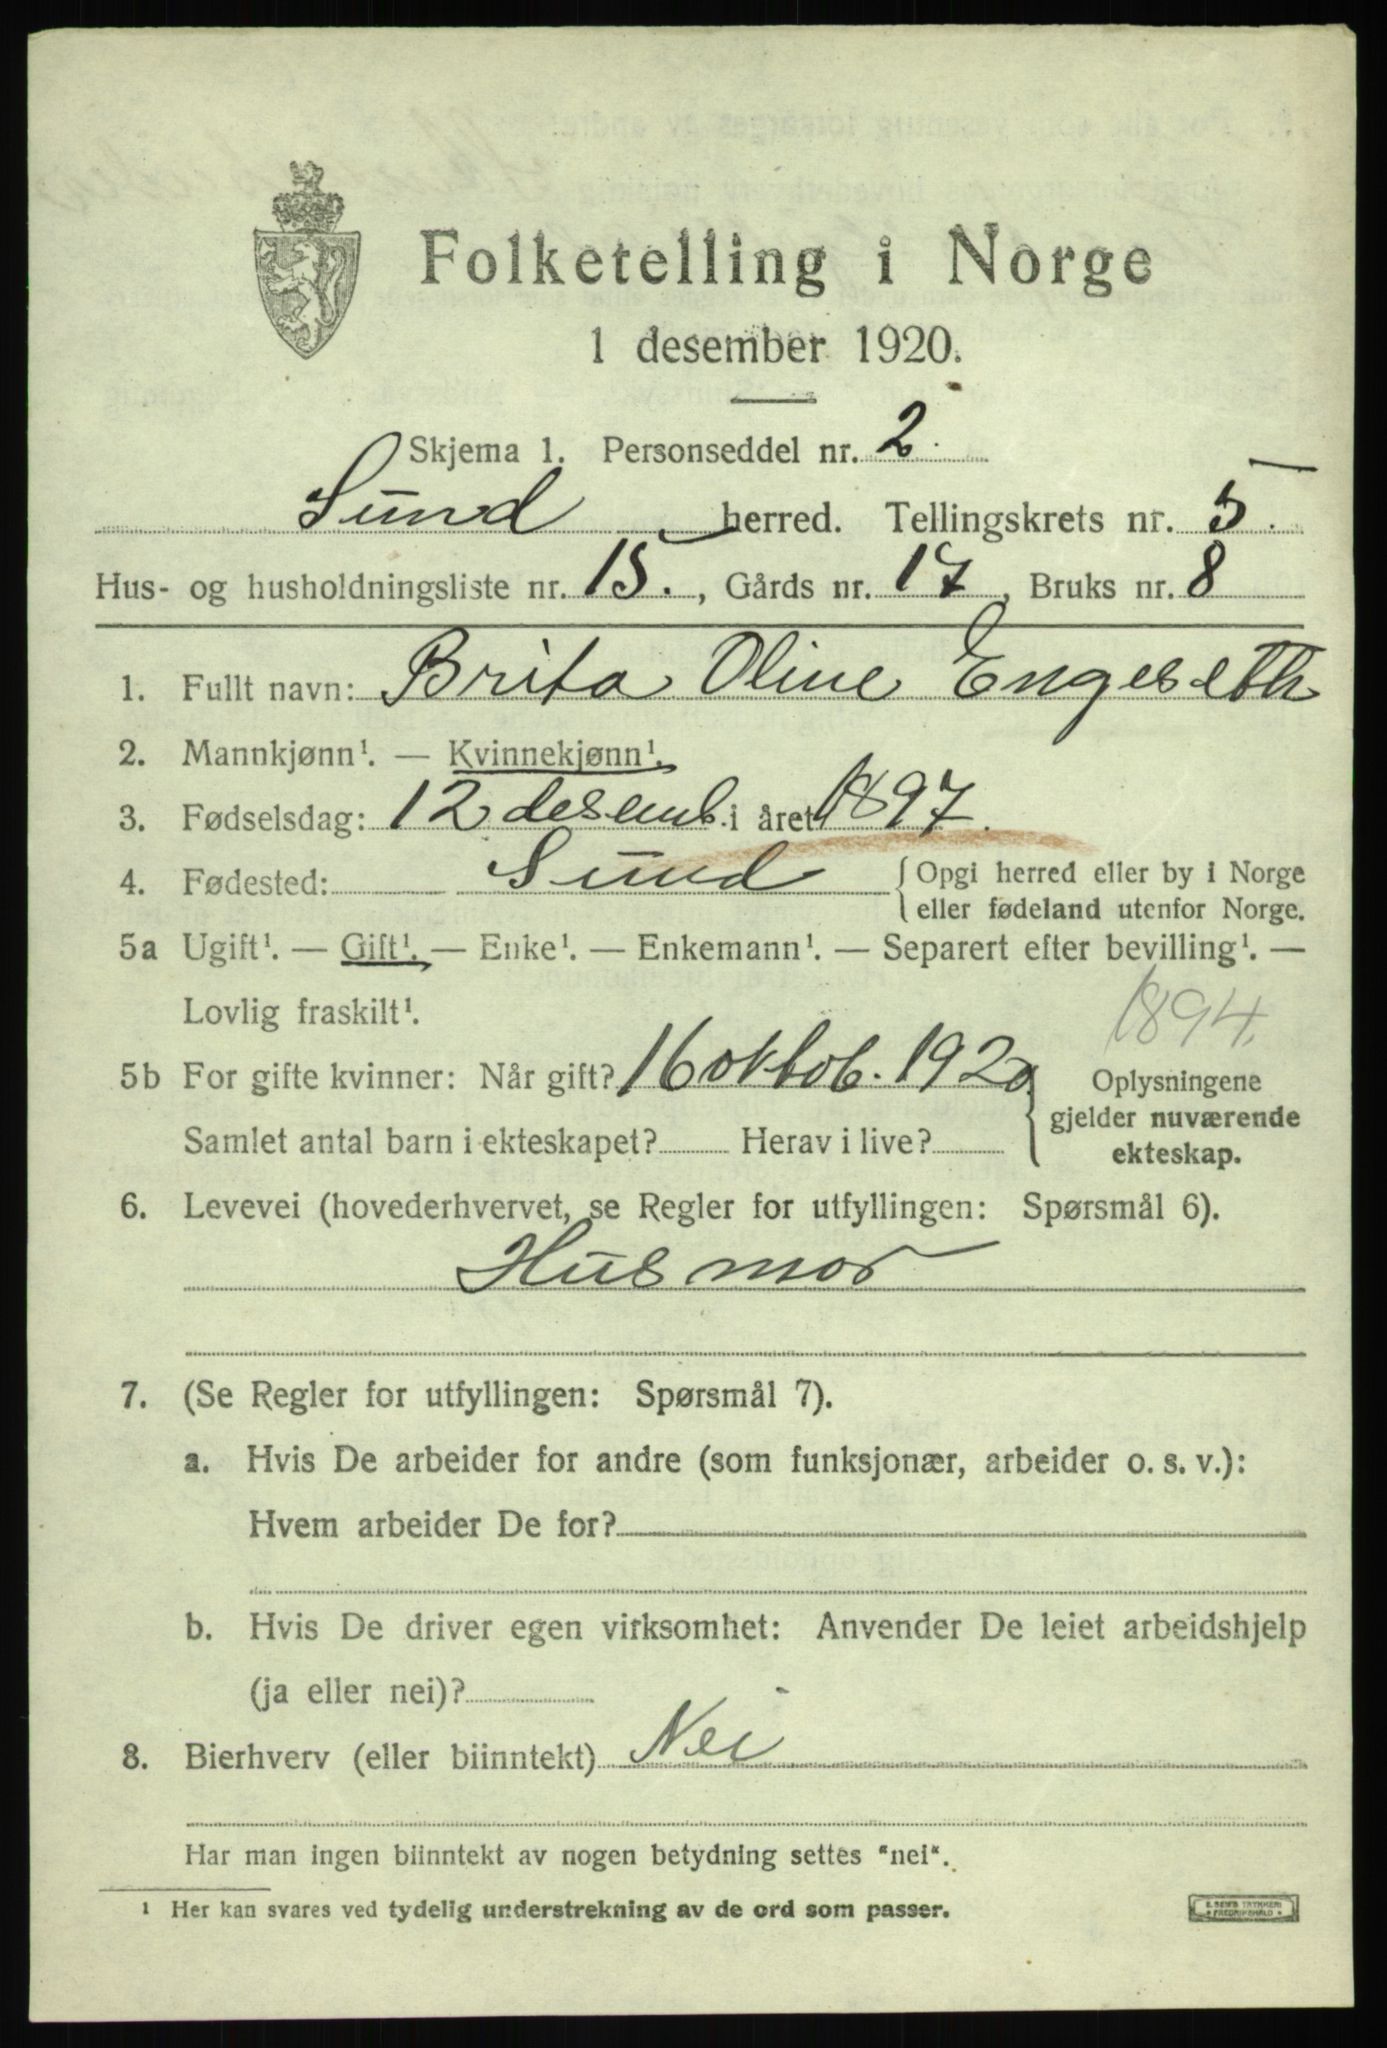 Folketelling i Norge
1 desember 1920.
Skjema 1. Personseddel nr. 2.
Sund herred. Tellingskrets nr. 5.
Hus- og husholdningsliste nr. 15., Gårds nr. 17, Bruks nr. 8
1. Fullt navn: Brita Oline Engeseth
2. Mannkjønn¹. — Kvinnekjønn¹.
3. Fødselsdag: 12 desemb. i året 1897.
4. Fødested: Sund { Opgi herred eller by i Norge
eller fødeland utenfor Norge.
5a Ugift¹. — Gift¹. — Enke¹. — Enkemann¹. — Separert efter bevilling¹. —
Lovlig fraskilt¹.
1894.
5b For gifte kvinner: Når gift? 16 oktob. 1920. { Oplysningene
gjelder nuværende
Samlet antal barn i ekteskapet? Herav i live?
ekteskap.
6. Levevei (hovederhvervet, se Regler for utfyllingen: Spørsmål 6).
Husmor
7. (Se Regler for utfyllingen: Spørsmål 7).
a. Hvis De arbeider for andre (som funksjonær, arbeider o. s. v.):
Hvem arbeider De for?
b. Hvis De driver egen virksomhet: Anvender De leiet arbeidshjelp
(ja eller nei)?
8. Bierhverv (eller biinntekt) Nei
Har man ingen biinntekt av nogen betydning settes "nei".
¹ Her kan svares ved tydelig understrekning av de ord som passer.
E. SEM'S TRYKKERI
FREDRIKSHALD